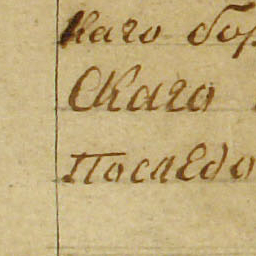 каго бор
Скаго
Последо